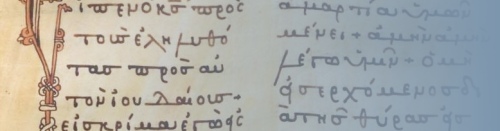 ἶπεν ὁ κς πρὸς
τοὺς ἐληλυθό
τας πρὸς αὐ
τὸν ἰουδαίους +
εἰς κρίμα ἐγὼ εἰς
ἁμαρτία ὑμῶν
μένει + ἀμὴν ἀμὴ
λέγω ὑμῖν + ὁ μὴ
εἰσερχόμενος δ
ὰ τῆς θύρας εἰς